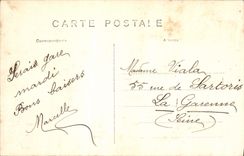 CARTE POSTALE
Correspondance
Serais gare
mardi
Bons baisers
Marcelle
Madame Viala
55 rue de Sartoris
La Garenne
(Seine)